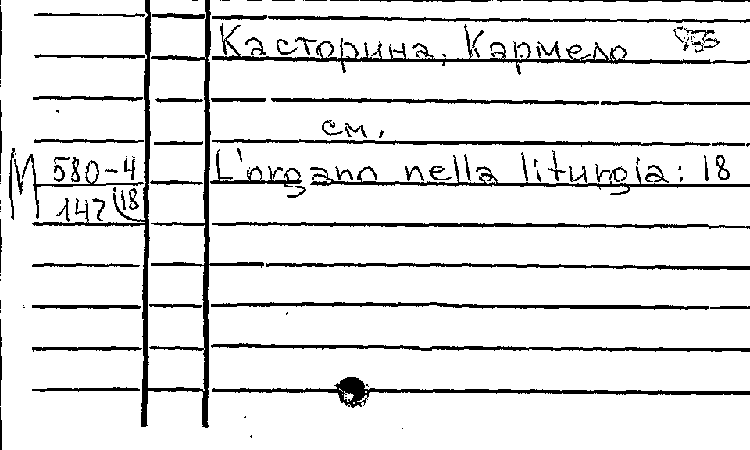 Касторина, Кармело
см.
M 580-4 L'organo nella liturgia: 18
147 (18